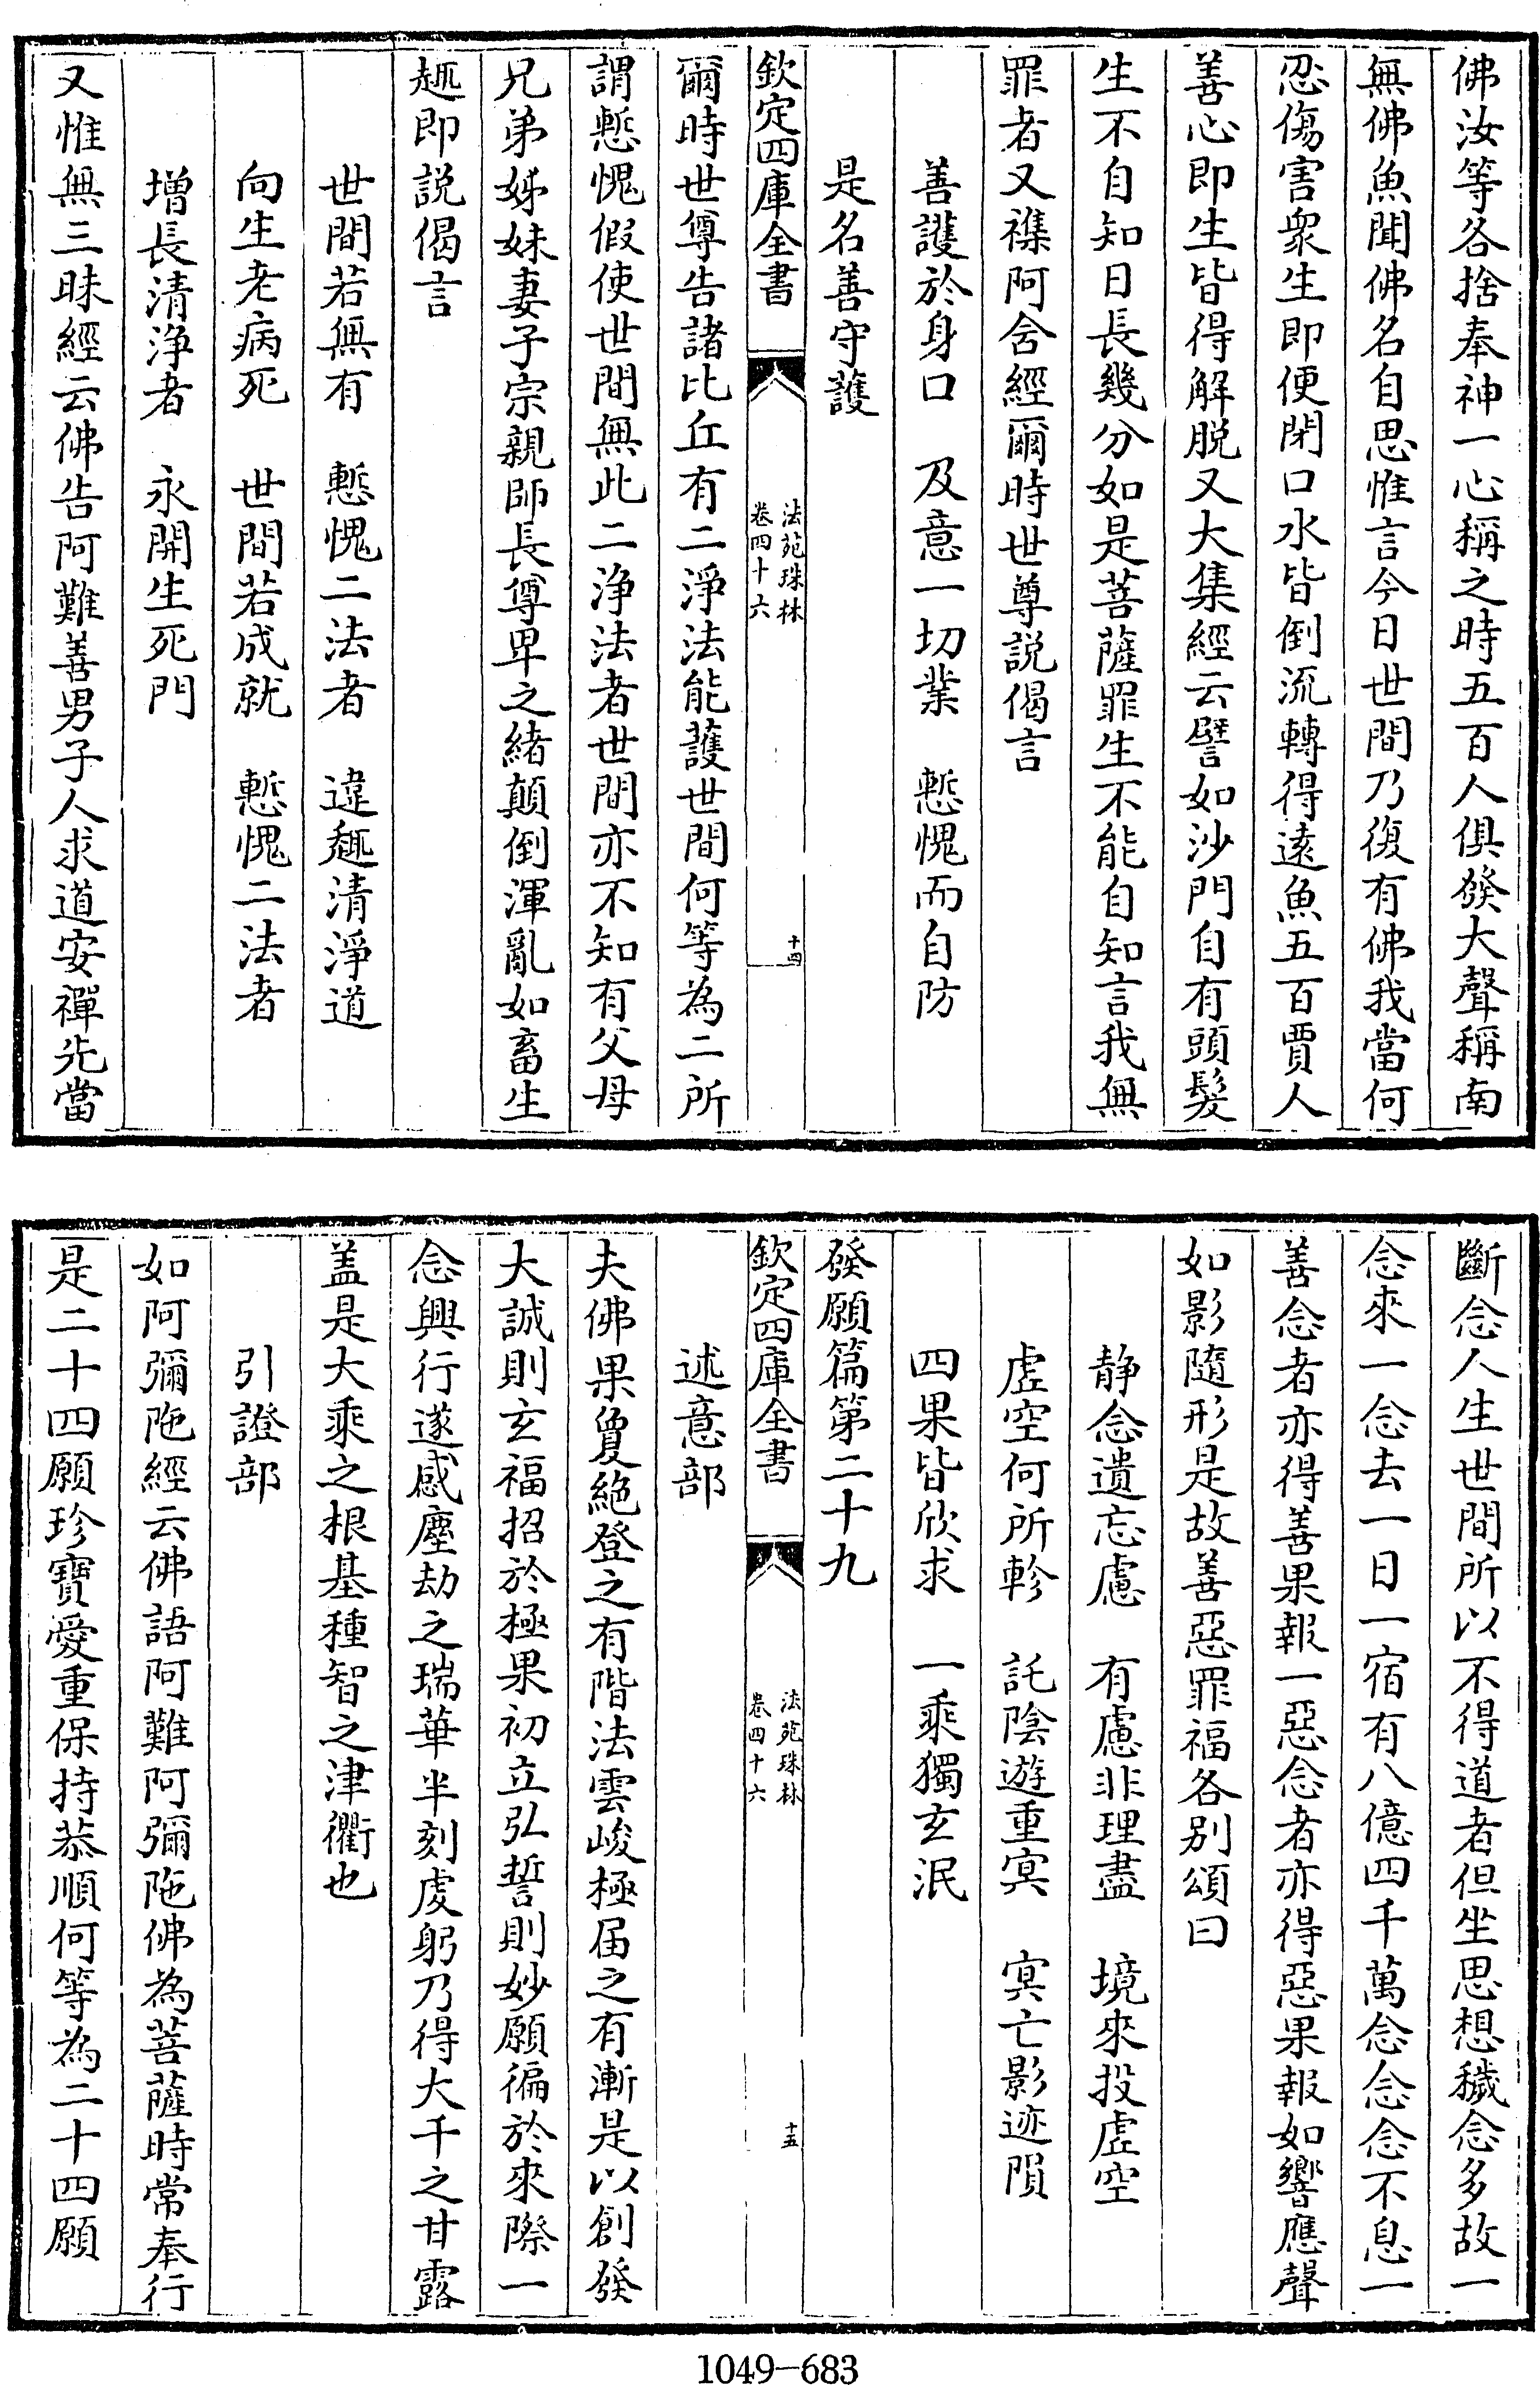 佛汝等各捨奉神一心稱之時五百人俱發大聲稱南
無佛魚聞佛名自思惟言今日世間乃復有佛我當何
忍傷害衆生即便閉口水皆倒流轉得遠魚五百賈人
善心即生皆得解脱又大集經云譬如沙門自有頭髮
生不自知日長幾分如是菩薩罪生不能自知言我無
罪者又襍阿含經爾時世尊説偈言
善護於身口　及意一切業　慙愧而自防
是名善守護
欽定四庫全書
法苑珠林
卷四十六
十四
爾時世尊告諸比丘有二淨法能護世間何等為二所
謂慙愧假使世間無此二浄法者世間亦不知有父母
兄弟姊妹妻子宗親師長尊卑之緒顛倒渾亂如畜生
趣即説偈言
世間若無有　慙愧二法者　違越清淨道
向生老病死　世間若成就　慙愧二法者
增長清浄者　永開生死門
又惟無三昧經云佛告阿難善男子人求道安禪先當
斷念人生世間所以不得道者但坐思想穢念多故一
念來一念去一日一宿有八億四千萬念念念不息一
善念者亦得善果報一惡念者亦得惡果報如響應聲
如影隨形是故善惡罪福各别頌曰
静念遺忘慮　有慮非理盡　境來投虛空
虛空何所軫　託陰遊重冥　冥亡影迹隕
四果皆欣求　一乘獨玄泯
發願篇第二十九
欽定四庫全書
法苑珠林
卷四十六
十五
述意部
夫佛果夐絶登之有階法雲峻極届之有漸是以創發
大誠則玄福招於極果初立弘誓則妙願徧於來際一
念興行遂感塵劫之瑞華半刻虔躬乃得大千之甘露
盖是大乘之根基種智之津衢也
引證部
如阿彌陁經云佛語阿難阿彌陁佛為菩薩時常奉行
是二十四願珍寶愛重保持恭順何等為二十四願
1049-683